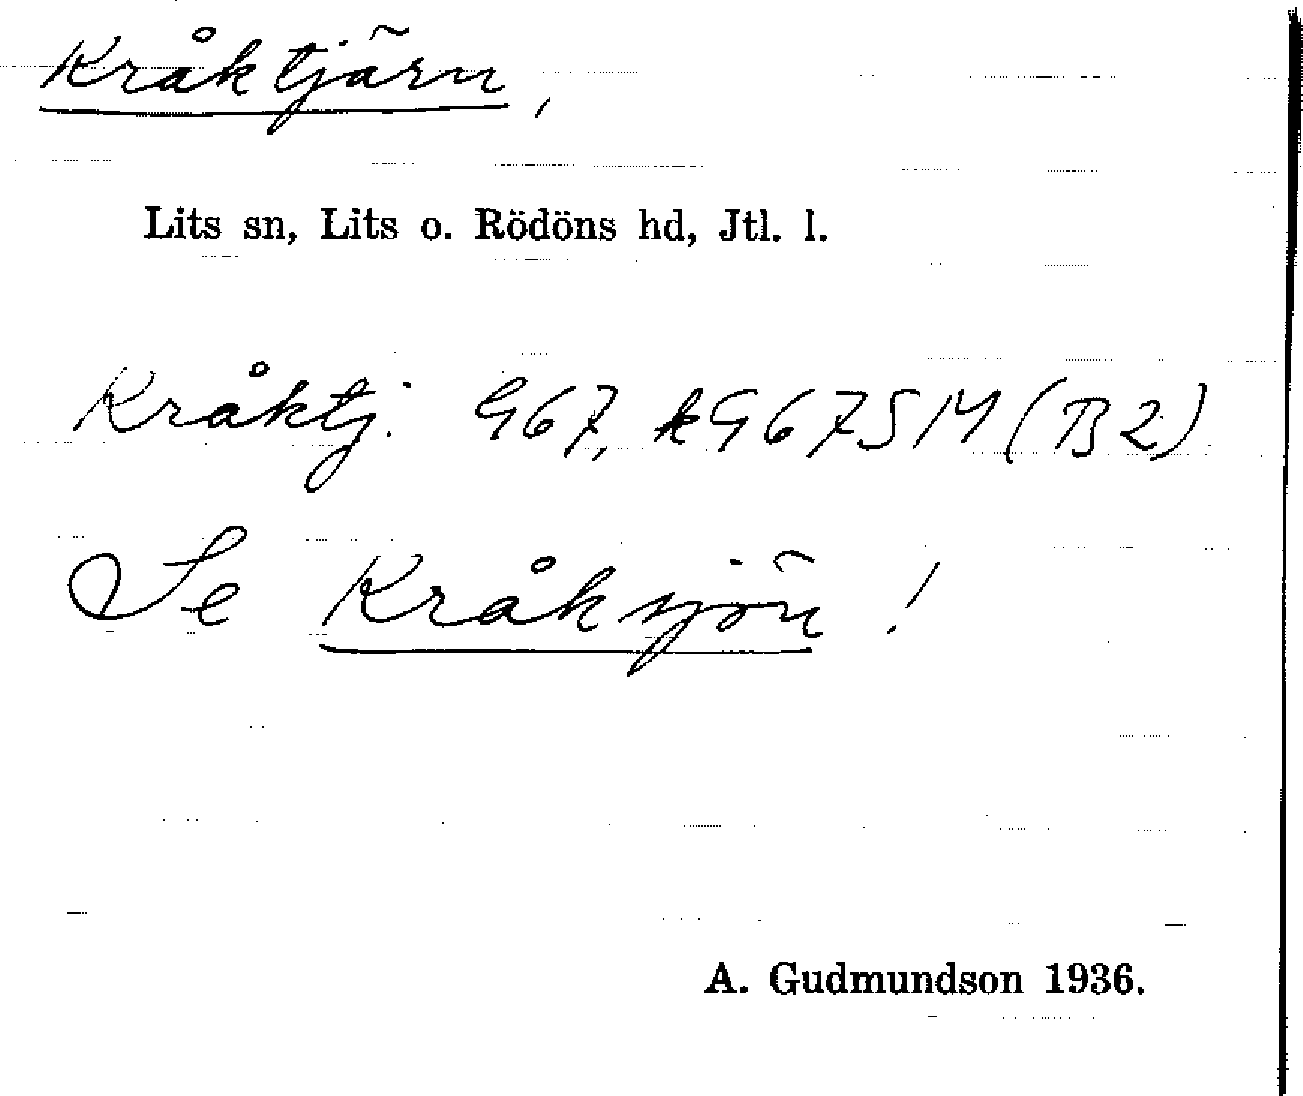 Kråktjärn,
Lits sn, Lits o. Rödöns hd, Jtl. l.
Kråktj. G67, kG67SM (B2)
Se Kråksjön!
A. Gudmundson 1936.